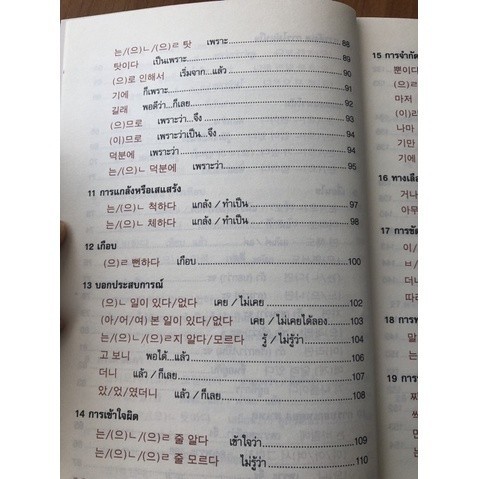 는/(으)ㄴ/(으)ㄹ 탓 เพราะ 88
탓이다 เป็นเพราะ 89
(으)로 인해서 เริ่มจาก...แล้ว 90
기에 ก็เพราะ 91
길래 พอดีว่า...ก็เลย 92
(으)므로 เพราะว่า...จึง 93
(이)므로 เพราะว่าเป็น...จึง 94
덕분에 เพราะว่า 94
는/(으)ㄴ 덕분에 เพราะว่า 95
11 การแกล้งหรือเสแสร้ง
는/(으)ㄴ 척하다 แกล้ง / ทำเป็น 97
는/(으)ㄴ 체하다 แกล้ง / ทำเป็น 98
12 เกือบ
(으)ㄹ 뻔하다 เกือบ 100
13 บอกประสบการณ์
(으)ㄴ 일이 있다/없다 เคย / ไม่เคย 102
(아/어/여) 본 일이 있다/없다 เคย / ไม่เคยได้ลอง 103
는/(으)ㄴ/(으)ㄹ지 알다/모르다 รู้ / ไม่รู้ว่า 104
고 보니 พอได้...แล้ว 106
더니 แล้ว / ก็เลย 107
았/었/였더니 แล้ว / ก็เลย 108
14 การเข้าใจผิด
는/(으)ㄴ/(으)ㄹ 줄 알다 เข้าใจว่า 109
는/(으)ㄴ/(으)ㄹ 줄 모르다 ไม่รู้ว่า 110
15 การจำกัด
뿐이다
마저
나마
기만
기에
16 ทางเลือ
거나
아무
17 การขัด
이/
ㅂ/
더
18 การ
말
는
19 การ